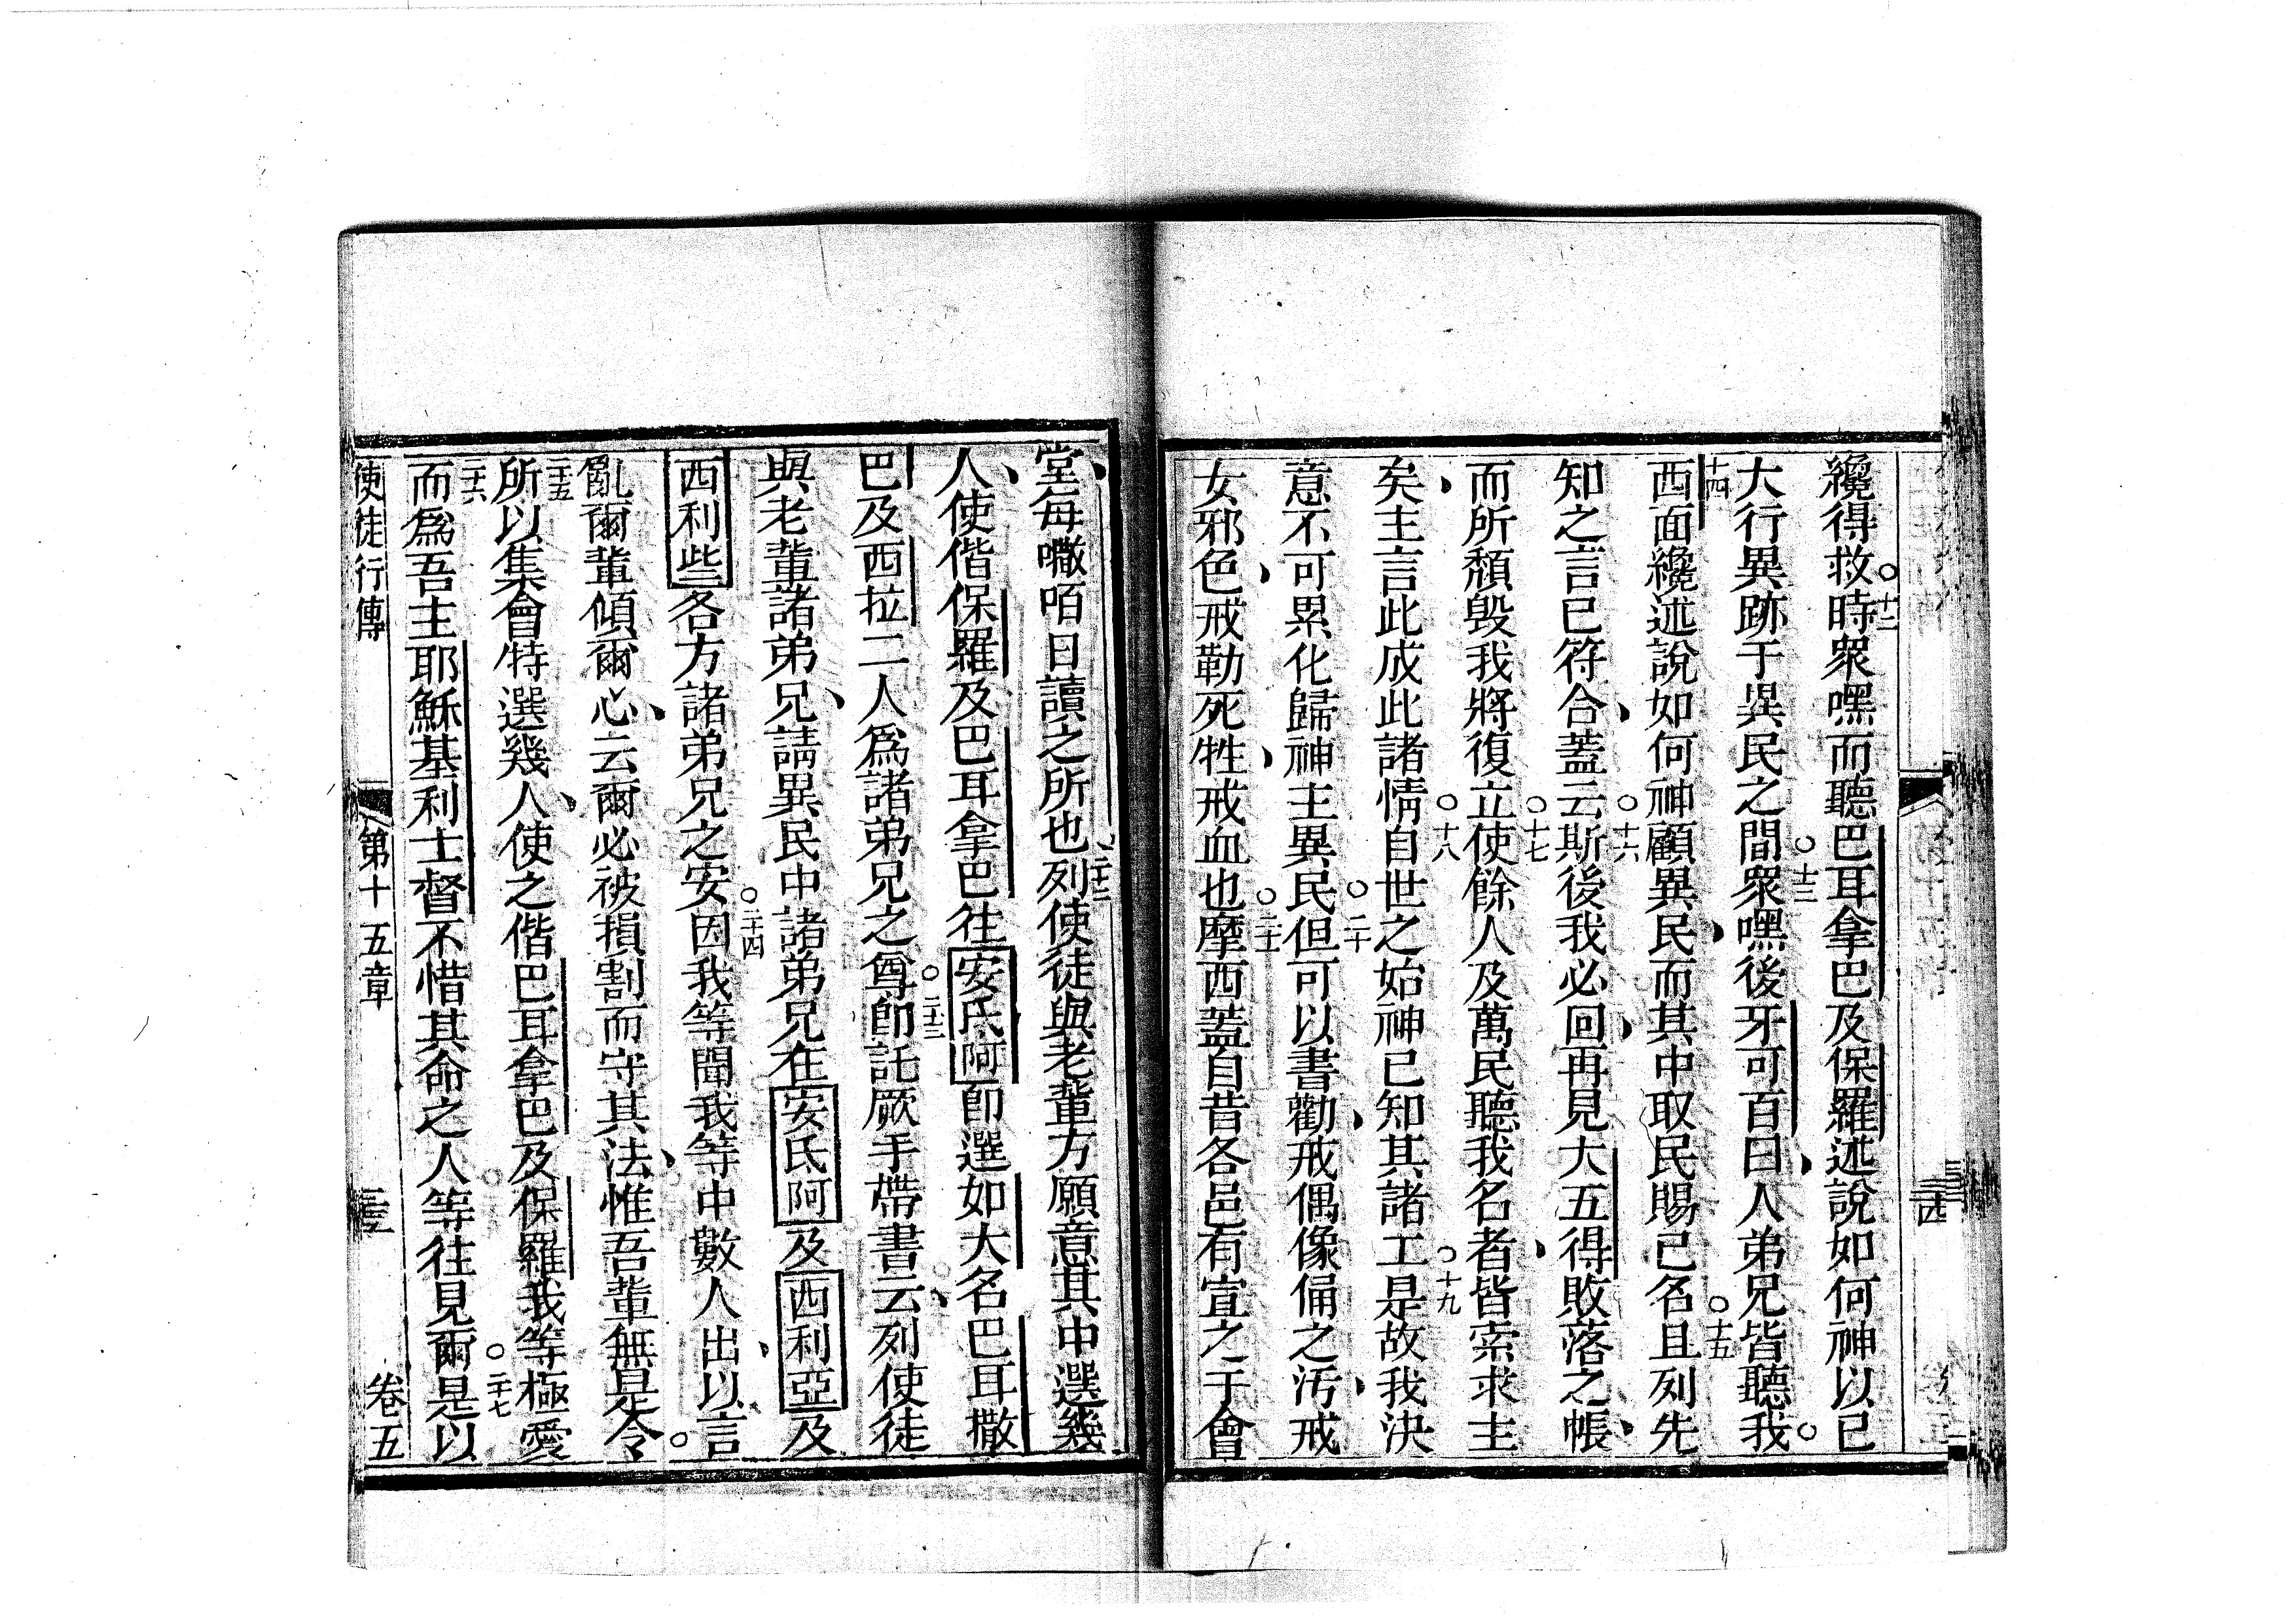 纔得救○十二時衆嘿而聽巴耳拿巴及保羅述說如何神以已
大行異跡于異民之間○十三衆嘿後牙可百曰人弟兄皆聽我○
十四西面纔述說如何神顧異民而其中取民賜己名○十五且列先
知之言已符合蓋云○十六斯後我必回再見大五得敗落之帳
而所頹毀我將復立○十七使餘人及萬民聽我名者皆索求主
矣主言此成此諸情○十八自世之始神已知其諸工○十九是故我決
意不可累化歸神主異民○二十但可以書勸戒偶像俑之汚戒
女邪色戒勒死牲戒血也○二十一摩西蓋自昔各邑有宣之于會
堂每㘔咟日讀之所也二十二列使徒與老輩方願意其中選幾
人使偕保羅及巴耳拿巴往安氐阿卽選如大名巴耳撒
巴及西拉二人爲諸弟兄之尊○二十三卽託厥手帶書云列使徒
與老輩諸弟兄請異民中諸弟兄在安氐阿及西利亞及
西利些各方諸弟兄之安○二十四因我等聞我等中數人出以言
亂爾輩傾爾心云爾必被損割而守其法惟吾輩無是令○
二十五所以集會特選幾人使之偕巴耳拿巴及保羅我等極愛
二十六而爲吾主耶穌基利士督不惜其命之人等往見爾○二十七是以
使徒行傳 第十五章 卷五